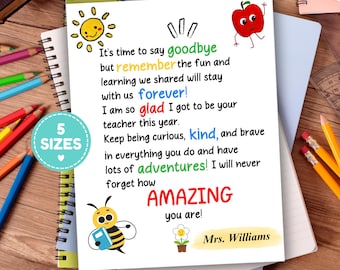 It's time to say goodbye
but remember the fun and
learning we shared will stay
with us forever!
I am so glad I got to be your
teacher this year.
Keep being curious, kind, and brave
in everything you do and have
lots of adventures! I will never
forget how
AMAZING
you are!
Mrs. Williams
5
SIZES